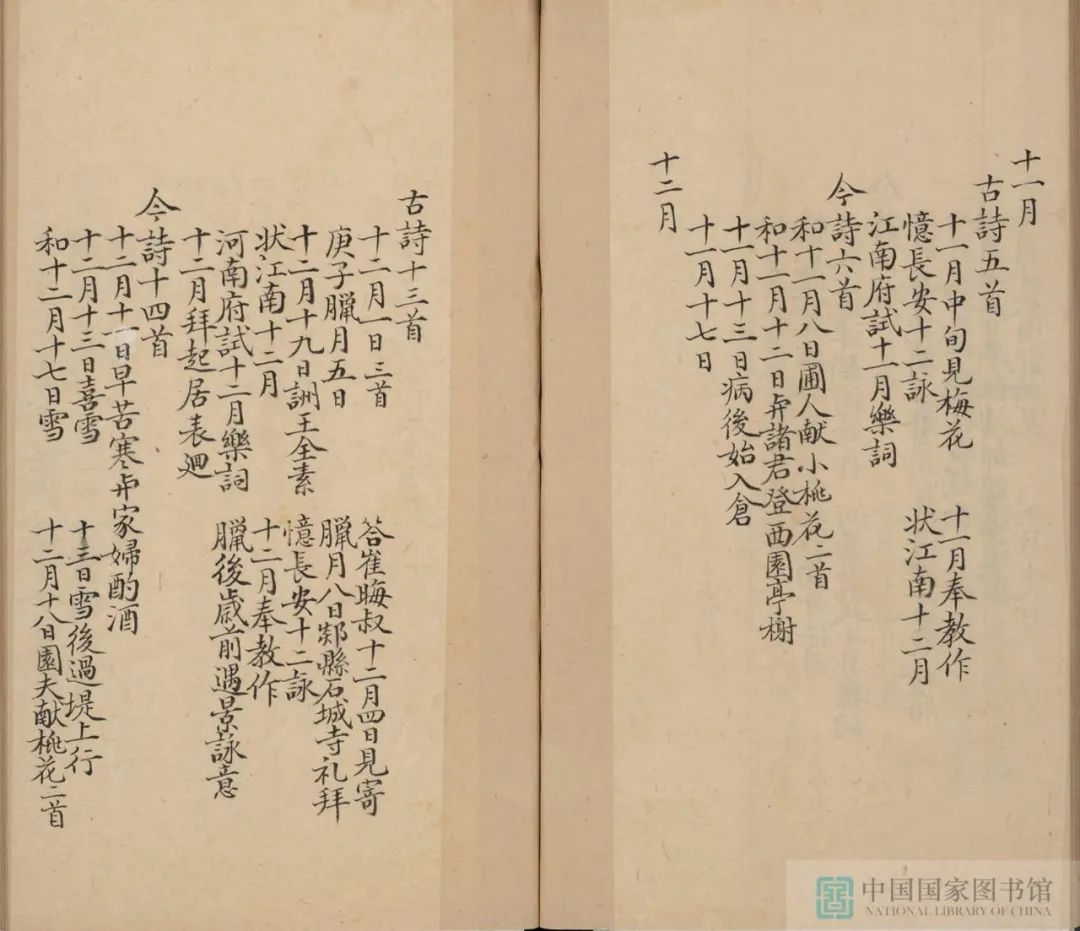 十一月
古詩五首
十一月中旬見梅花
十一月奉教作
憶長安十二詠
状江南十二月
江南府試十一月樂詞
今詩六首
和十一月八日圃人献小桃花二首
和十一月十二日弁諸君登西園亭榭
十一月十三日病後始入倉
十一月十七日
十二月
古詩十三首
十二月一日三首
荅崔晦叔十二月四日見寄
庚子臘月五日
臘月八日郯縣石城寺礼拜
十二月十九日詶王全素
憶長安十二詠
状江南十二月
十二月奉教作
河南府試十二月樂詞
臘後歳前遇景詠意
十二月拜起居表廻
今詩十四首
十二月十一日早苦寒弁家婦酌酒
十二月十三日喜雪
十三日雪後過堤上行
和十二月十七日雪
十二月十八日園夫献桃花二首
中国国家图书馆
NATIONAL LIBRARY OF CHINA